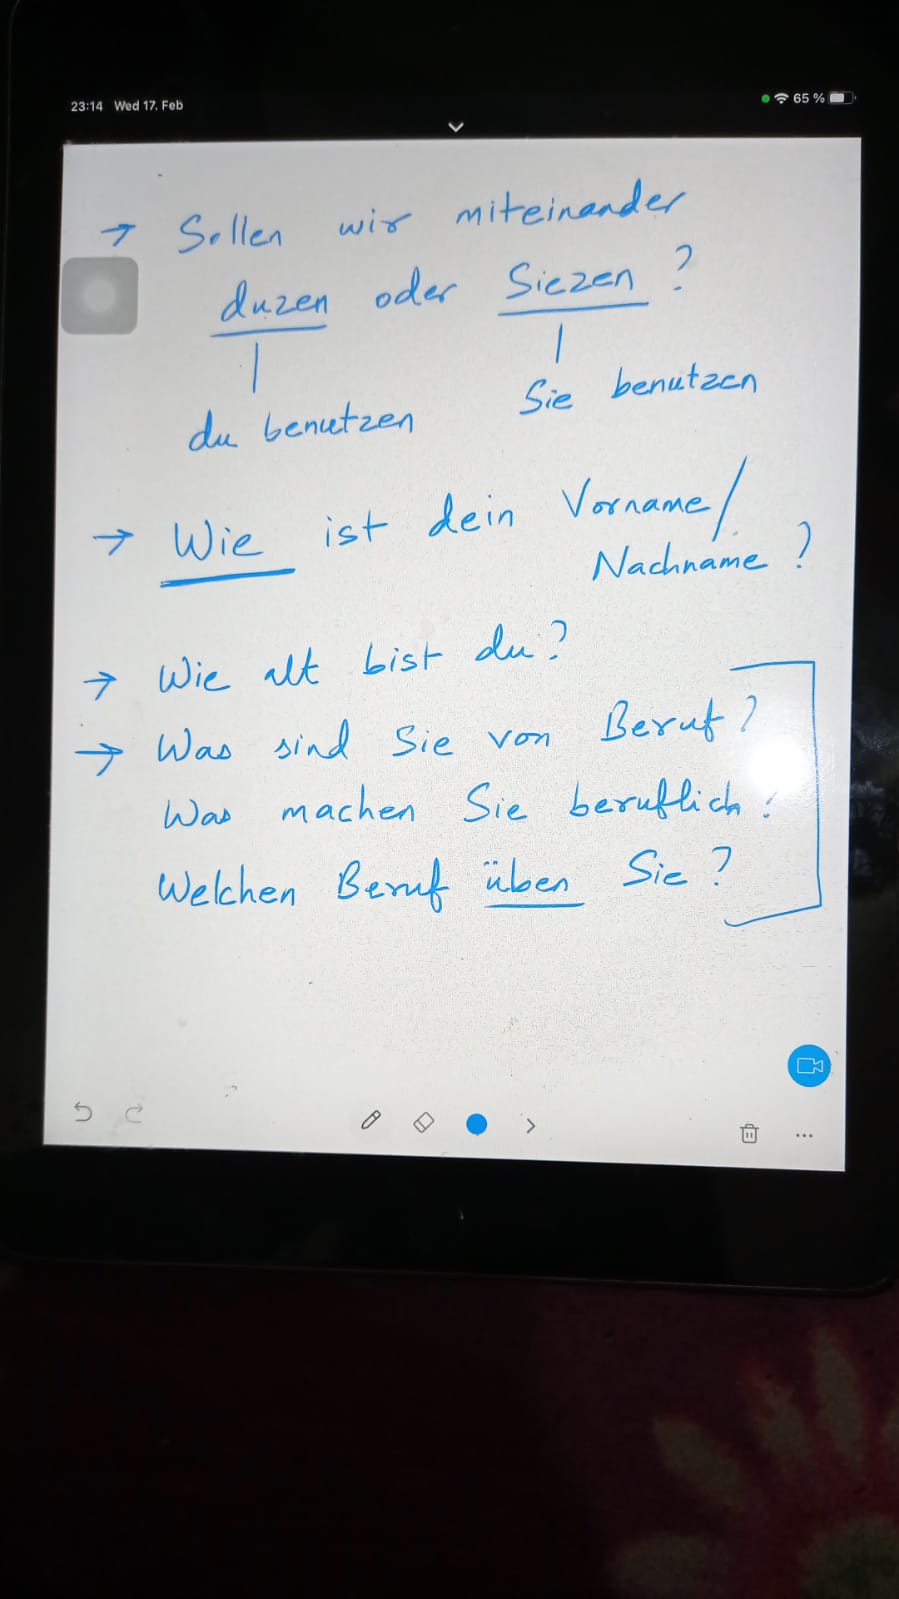 23:14 Wed 17. Feb 65 %
→ Sollen wir miteinander
duzen oder Siezen ?
du benutzen Sie benutzen
→ Wie ist dein Vorname/
Nachname ?
→ Wie alt bist du?
→ Was sind Sie von Beruf?
Was machen Sie beruflich?
Welchen Beruf üben Sie?